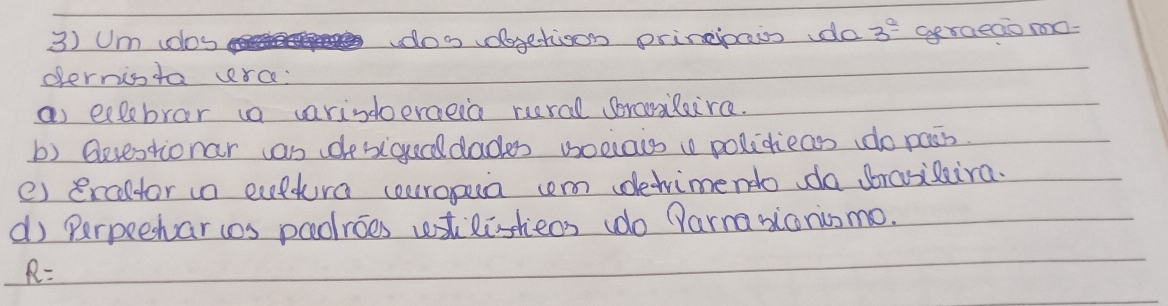 3) Um dos dos objetivos principais da 3ª geração mo-
dernista era:
a) celebrar a aristocracia rural brasileira.
b) Questionar as desigualdades sociais e políticas do país.
c) Exaltar a cultura europeia em detrimento da brasileira.
d) Perpectuar os padrões estilísticos do Parnasianismo.
R=